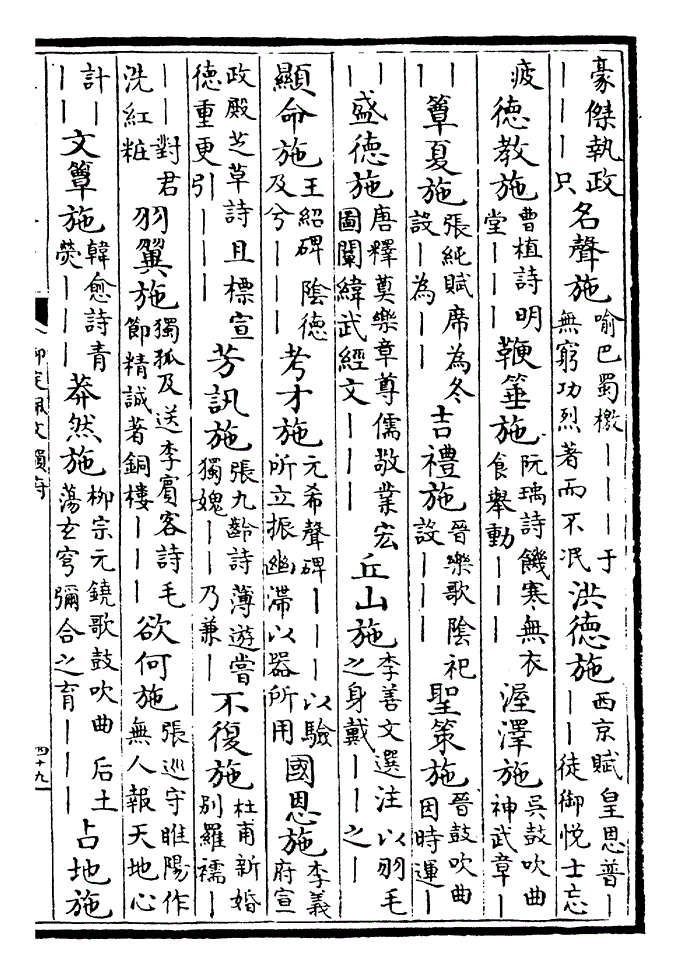 豪傑執政｜｜｜只 名聲施 喻巴蜀檄｜｜｜于無窮功烈著而不泯 洪德施 西京賦皇恩普｜｜｜徒御悦士忘
疲 德教施 曹植詩明堂｜｜｜ 鞭箠施 阮瑀詩饑寒無衣食舉動｜｜｜ 渥澤施 吳鼓吹曲神武章｜
｜｜ 簟夏施 張純賦席為冬設｜為｜｜ 吉禮施 晉樂歌陰祀設｜｜｜ 聖策施 晉鼓吹曲因時運｜
｜｜ 盛德施 唐釋奠樂章尊儒敬業宏圖闡緯武經文｜｜｜ 丘山施 李善文選注以羽毛之身戴｜｜之｜
顯命施 王紹碑陰德及兮｜｜｜ 考才施 元希聲碑｜｜｜以驗所立振幽滯以器所用 國恩施 李義府宣
政殿芝草詩且標宣德重更引｜｜｜ 芳訊施 張九齡詩薄遊嘗獨媿｜｜乃兼｜ 不復施 杜甫新婚别羅襦｜
｜｜對君洗紅粧 羽翼施 獨狐及送李賓客詩毛節精誠著銅樓｜｜｜ 欲何施 張巡守睢陽作無人報天地心
計｜｜｜ 文簟施 韓愈詩青熒｜｜｜ 莽然施 柳宗元鐃歌鼓吹曲后土蕩玄穹彌合之育｜｜｜ 占地施
御定佩文韻府
四十九